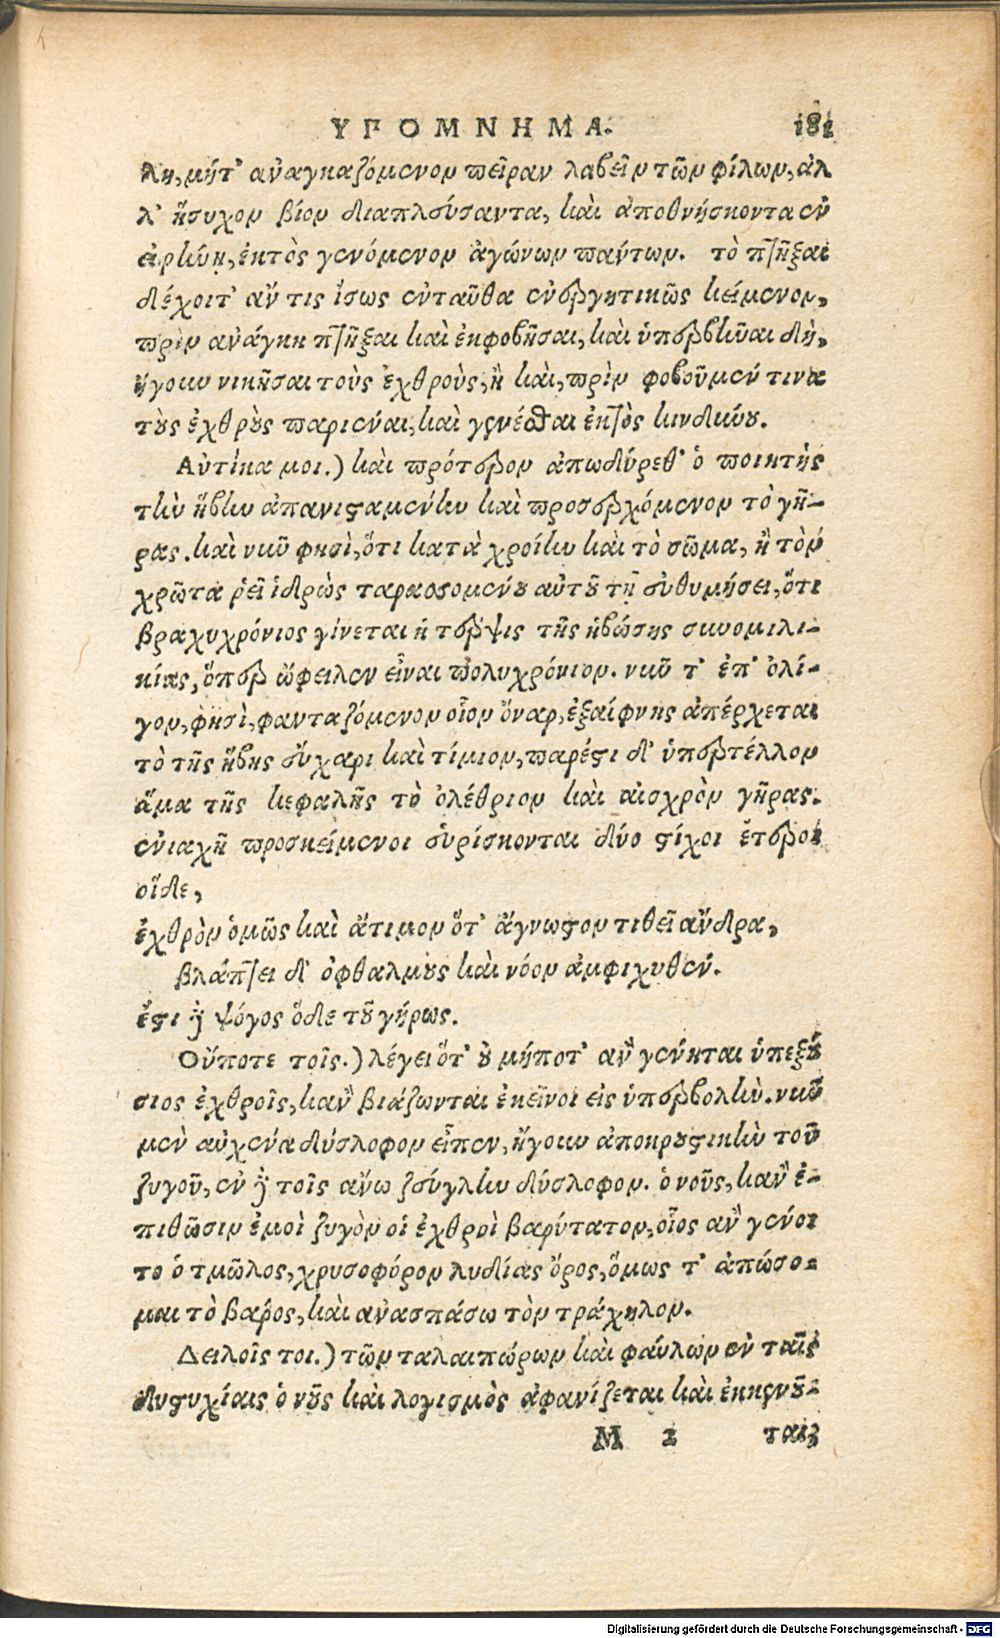 ΥΠΟΜΝΗΜΑ. 181
λη, μήτ' ἀναγκαζόμενον πεῖραν λαβεῖν τῶν φίλων, ἀλ
λ' ἥσυχον βίον διαπλεύσαντα, καὶ ἀποθνήσκοντα ἐν
εἰρήνῃ, ἐκτὸς γενόμενον ἀγώνων πάντων. τὸ πτῆξαι
δέχοιτ' ἄν τις ἴσως ἐνταῦθα ἐνεργητικῶς κείμενον,
πρὶν ἀνάγκη πτῆξαι καὶ ἐκφοβῆσαι, καὶ ὑπερβῆναι δὴ,
ἤγουν νικῆσαι τοὺς ἐχθροὺς, ἢ καὶ, πρὶν φοβούμενόν τινα
τοὺς ἐχθροὺς παριέναι, καὶ γενέσθαι ἐκτὸς κινδύνου.
Αὐτίκα μοι.) καὶ πρότερον ἀπωδύρεθ' ὁ ποιητὴς
τὴν ἥβην ἀπανισταμένην καὶ προσερχόμενον τὸ γῆ-
ρας. καὶ νῦν φησὶ, ὅτι κατὰ χροίην καὶ τὸ σῶμα, ἢ τὸν
χρῶτα ῥεῖ ἱδρὼς ταρασσομένου αὐτοῦ τῇ ἐνθυμήσει, ὅτι
βραχυχρόνιος γίνεται ἡ τέρψις τῆς ἡβώσης συνομιλι-
κίας, ὅπερ ὤφειλεν εἶναι πολυχρόνιον. νῦν τ' ἐπ' ὀλί-
γον, φησὶ, φανταζόμενον οἷον ὄναρ, ἐξαίφνης ἀπέρχεται
τὸ τῆς ἥβης εὔχαρι καὶ τίμιον, πάρεστι δ' ὑπερτέλλον
ἅμα τῆς κεφαλῆς τὸ ὀλέθριον καὶ αἰσχρὸν γῆρας.
ἐνιαχῆ προσκείμενοι εὑρίσκονται δύο στίχοι ἕτεροι
οἵδε,
ἐχθρὸν ὁμῶς καὶ ἄτιμον ὅτ' ἄγνωστον τιθεῖ ἄνδρα,
βλάπτει δ' ὀφθαλμοὺς καὶ νόον ἀμφιχυθέν.
ἔστι ϗ ψόγος ὅδε τοῦ γήρως.
Οὔποτε τοῖς.) λέγει ὅτ' οὐ μήποτ' ἂν γένηται ὑπεξού
σιος ἐχθροῖς, κἂν βιάζωνται ἐκεῖνοι εἰς ὑπερβολήν. νῦν
μὲν αὐχένα δύσλοφον εἶπεν, ἤγουν ἀποκρουστικὴν τοῦ
ζυγοῦ, ἐν ϗ τοῖς ἄνω ζεύγλην δύσλοφον. ὁ νοῦς, κἂν ἐ-
πιθῶσιν ἐμοὶ ζυγὸν οἱ ἐχθροὶ βαρύτατον, οἷος ἂν γένοι
το ὁ τμῶλος, χρυσοφόρον λυδίας ὄρος, ὅμως τ' ἀπώσο-
μαι τὸ βάρος, καὶ ἀνασπάσω τὸν τράχηλον.
Δειλοῖς τοι.) τῶν ταλαιπώρων καὶ φαύλων ἐν ταῖς
δυστυχίαις ὁ νοῦς καὶ λογισμὸς ἀφανίζεται καὶ ἐκκενοῦ-
M 2 ται,
Digitalisierung gefördert durch die Deutsche Forschungsgemeinschaft - DFG